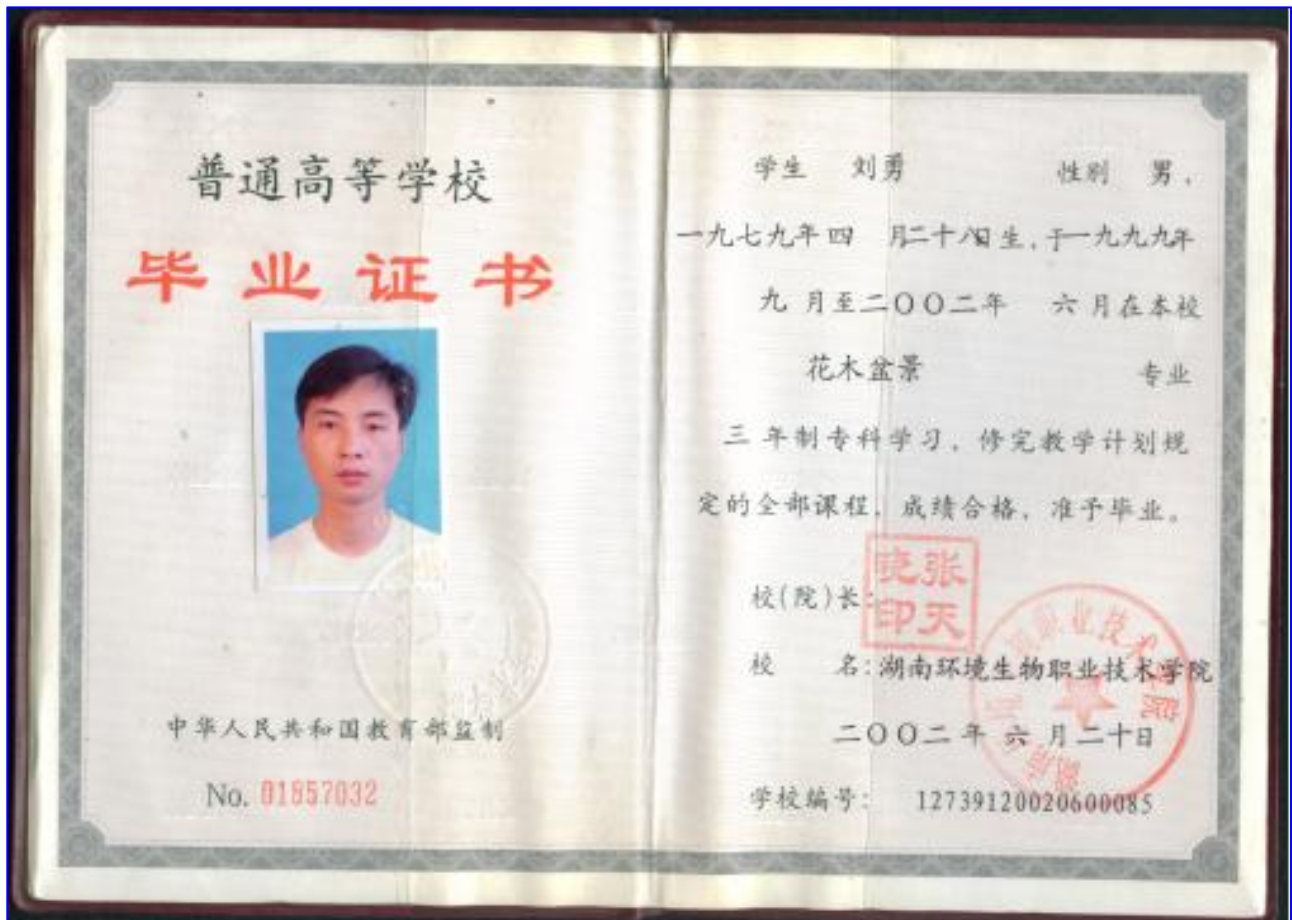 普通高等学校
毕业证书
中华人民共和国教育部监制
No. 01857032
学生 刘勇 性别 男,
一九七九年四 月二十八日生,于一九九九年
九 月至二〇〇二年 六 月在本校
花木盆景 专业
三 年制专科学习,修完教学计划规
定的全部课程,成绩合格,准予毕业。
张天
晓印
校(院)长:
校 名:湖南环境生物职业技术学院
二〇〇二年 六 月二十日
学校编号: 12739120020600085